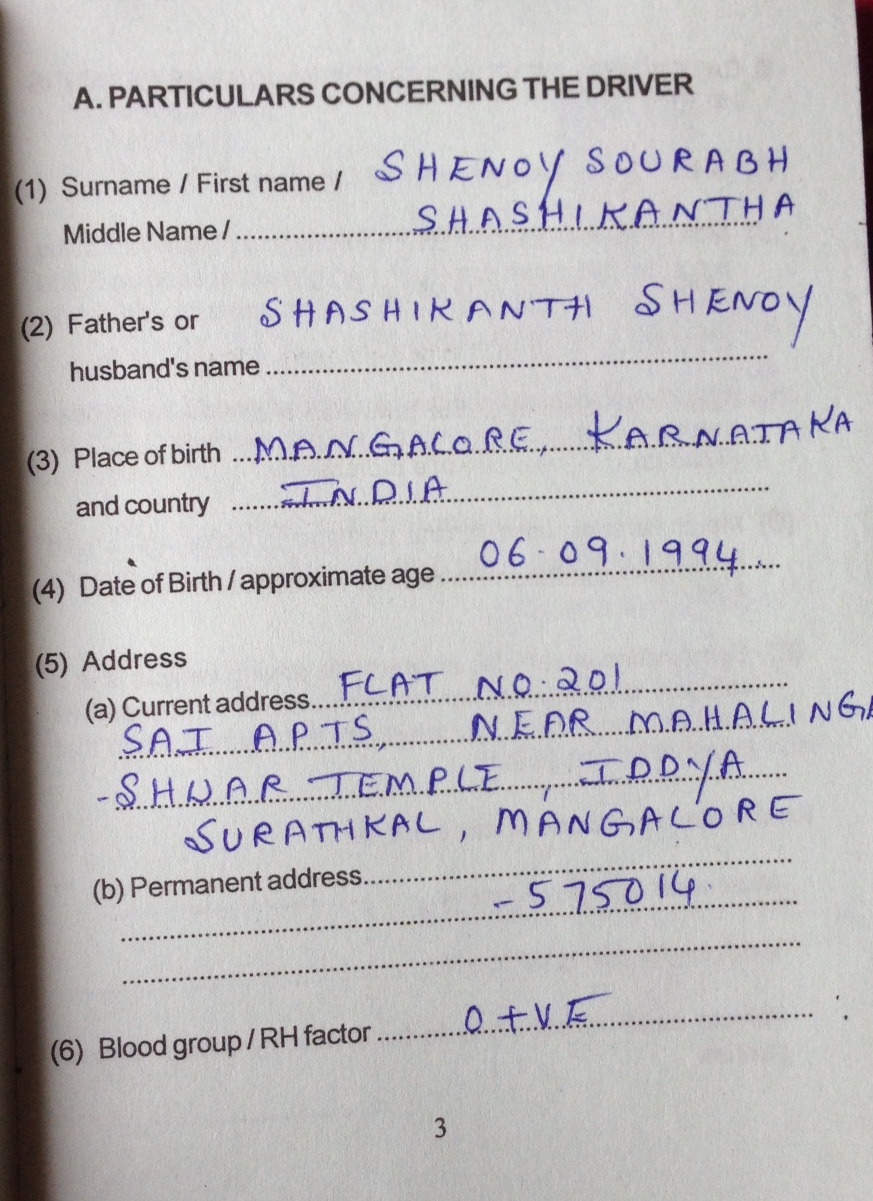 A. PARTICULARS CONCERNING THE DRIVER
(1) Surname / First name / SHENOY SOURABH
Middle Name / SHASHIKANTHA
(2) Father's or SHASHIKANTH SHENOY
husband's name
(3) Place of birth MANGALORE, KARNATAKA
and country INDIA
(4) Date of Birth / approximate age 06.09.1994
(5) Address
(a) Current address FLAT NO.201
SAI APTS, NEAR MAHALINGA
-SHWAR TEMPLE, IDDYA
SURATHKAL, MANGALORE
(b) Permanent address
-575014.
(6) Blood group / RH factor O +VE
3